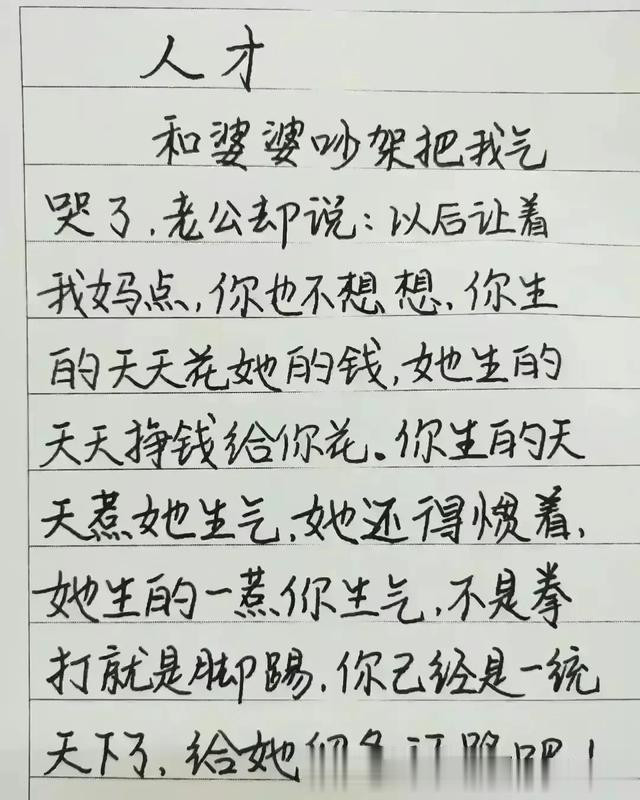 人才
和婆婆吵架把我气
哭了，老公却说：以后让着
我妈点，你也不想想，你生
的天天花她的钱，她生的
天天挣钱给你花。你生的天
天惹她生气，她还得惯着，
她生的一惹你生气，不是拳
打就是脚踢，你已经是一统
天下了，给她